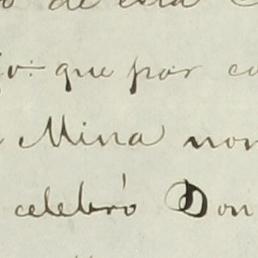 de esta
que por
Mina
celebró Don